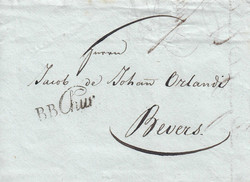 Herrn
Jacob de Johan Orlandi
B.B. Chur.
Bevers.